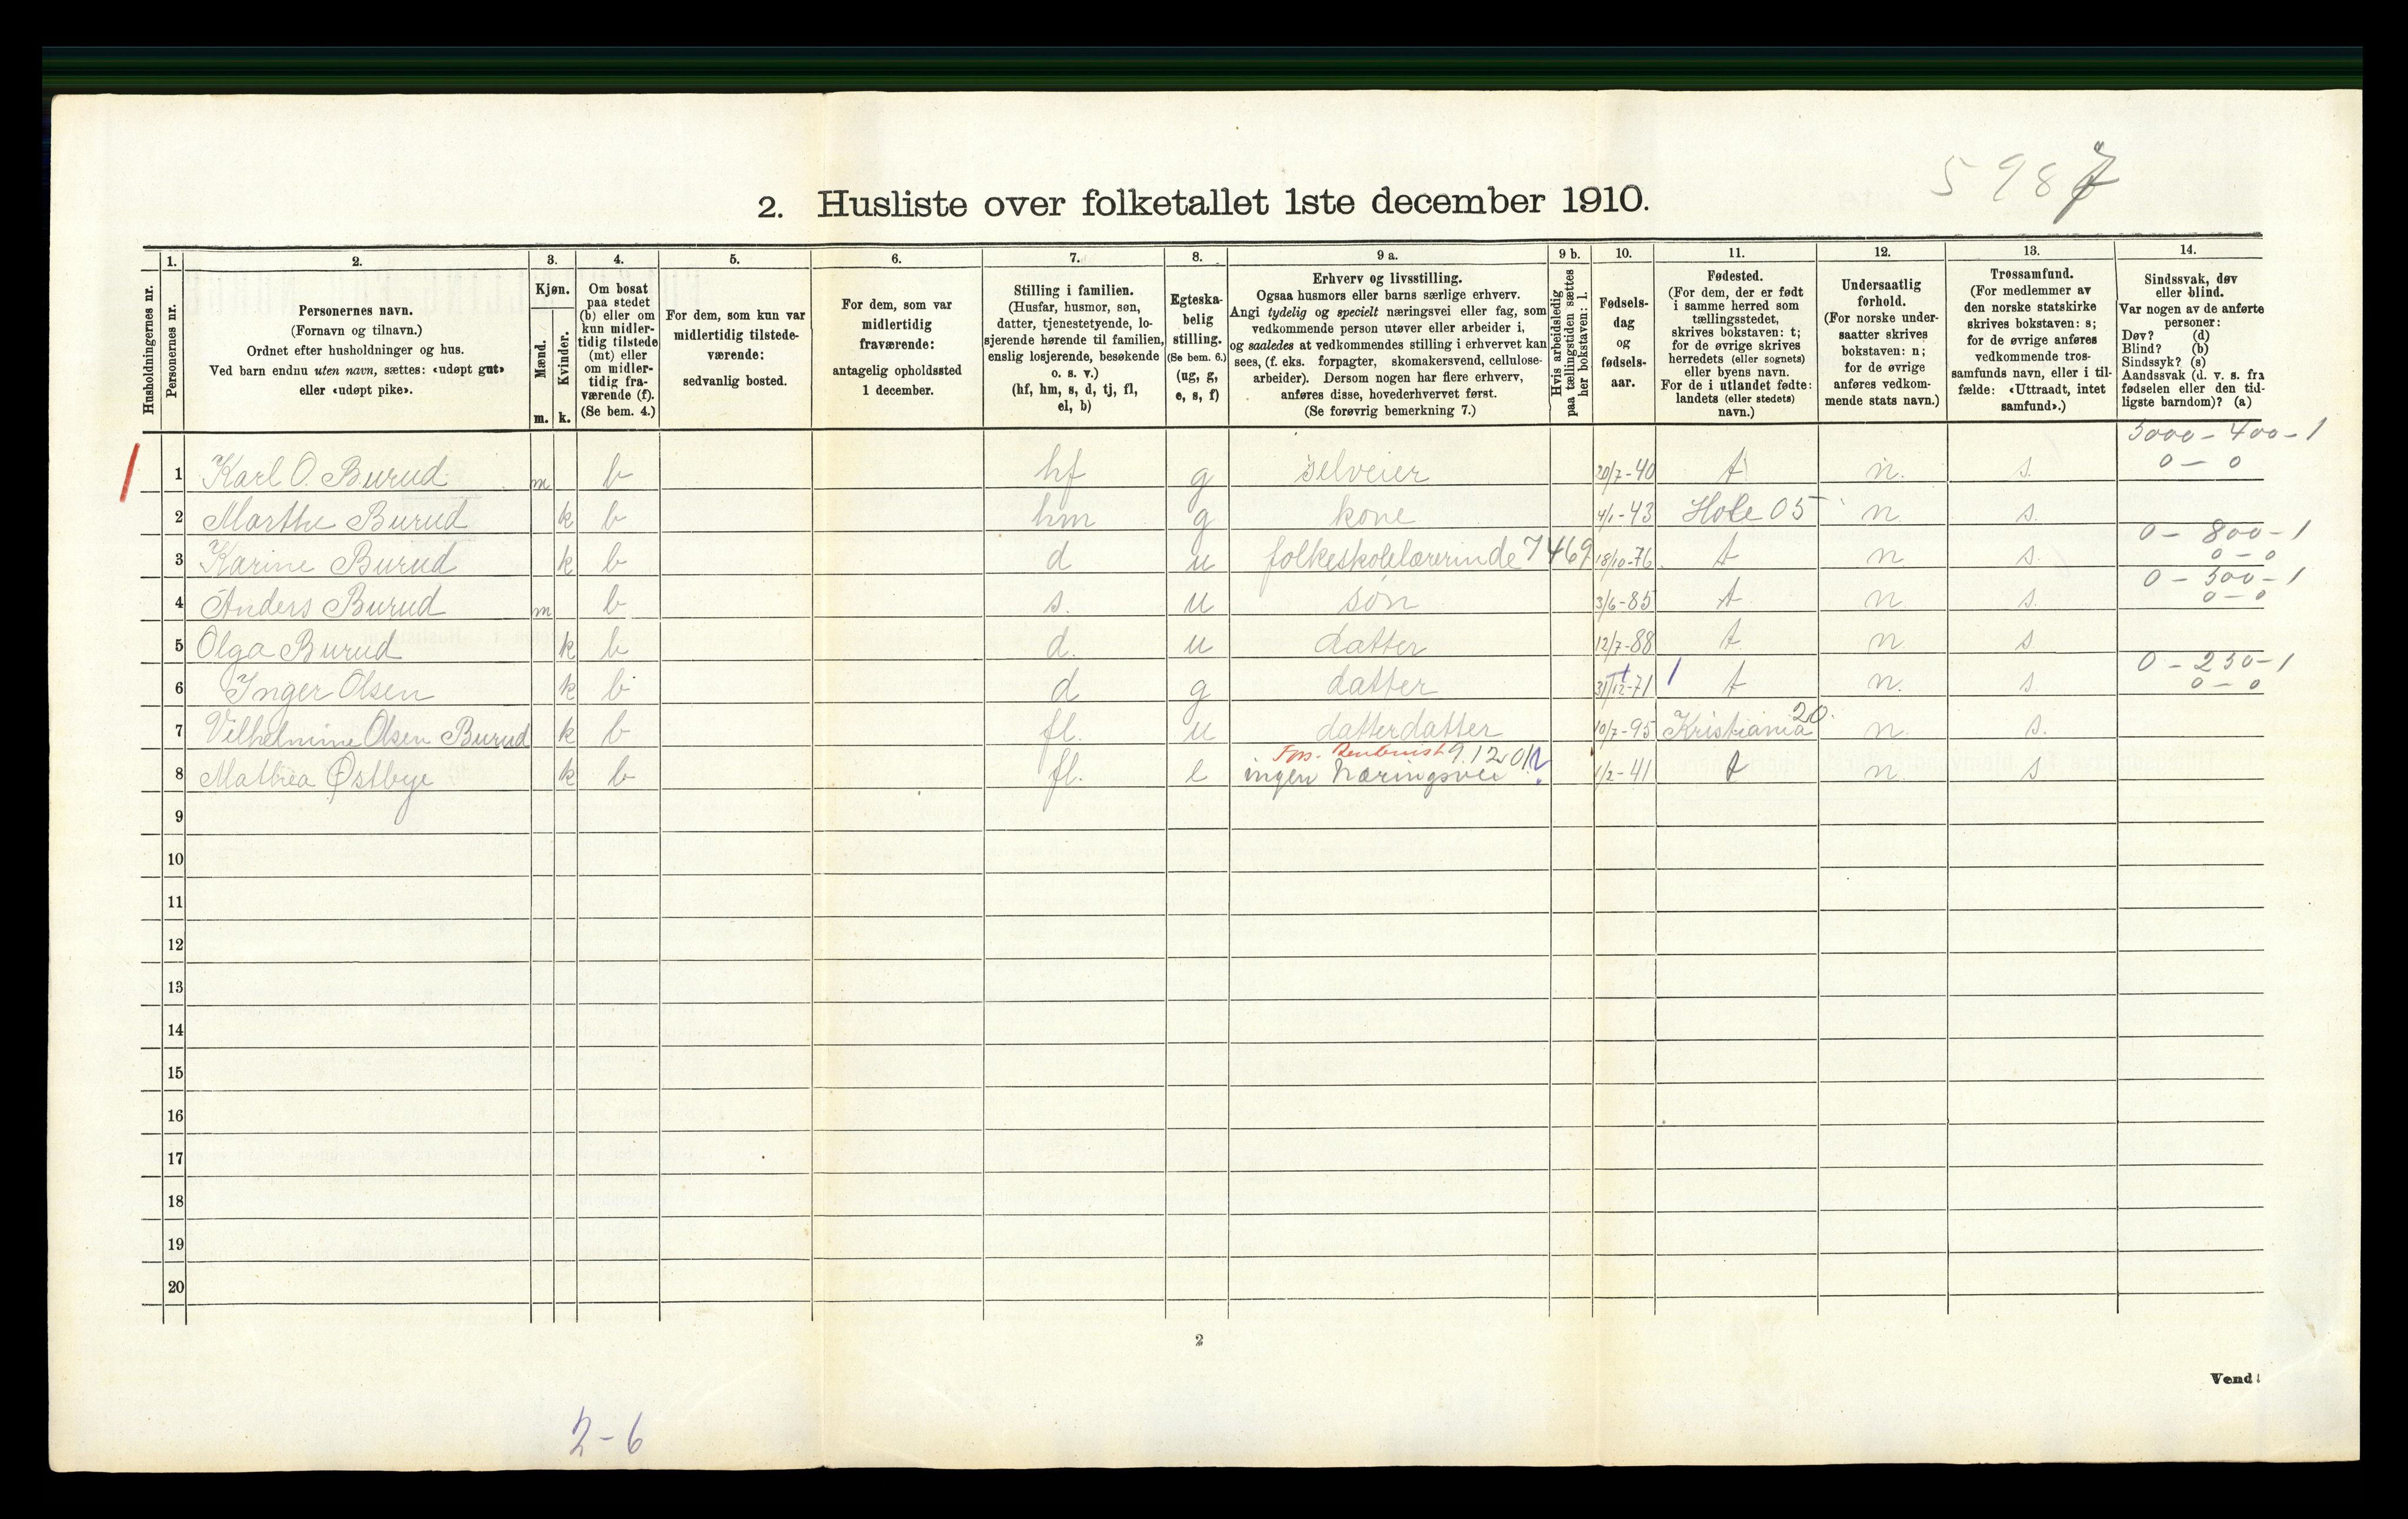 5987
2. Husliste over folketallet 1ste december 1910.
Husholdningernes nr.
1.
Personernes nr.
2.
Personernes navn.
(Fornavn og tilnavn.)
Ordnet efter husholdninger og hus.
Ved barn endnu uten navn, sættes: «udøpt gut»
eller «udøpt pike».
3.
Kjøn.
Mænd.
Kvinder.
m. k.
4.
Om bosat
paa stedet
(b) eller om
kun midler-
tidig tilstede
(mt) eller
om midler-
tidig fra-
værende (f).
(Se bem. 4.)
5.
For dem, som kun var
midlertidig tilstede-
værende:
sedvanlig bosted.
6.
For dem, som var
midlertidig
fraværende:
antagelig opholdssted
1 december.
7.
Stilling i familien.
(Husfar, husmor, søn,
datter, tjenestetyende, lo-
sjerende hørende til familien,
enslig losjerende, besøkende
o. s. v.)
(hf, hm, s, d, tj, fl,
el, b)
8.
Egteska-
belig
stilling.
(Se bem. 6.)
(ug, g,
e, s, f)
9 a.
Erhverv og livsstilling.
Ogsaa husmors eller barns særlige erhverv.
Angi tydelig og specielt næringsvei eller fag, som
vedkommende person utøver eller arbeider i,
og saaledes at vedkommendes stilling i erhvervet kan
sees, (f. eks. forpagter, skomakersvend, cellulose-
arbeider). Dersom nogen har flere erhverv,
anføres disse, hovederhvervet først.
(Se forøvrig bemerkning 7.)
9 b.
Hvis arbeidsledig
paa tællingstiden sættes
her bokstaven: l.
10.
Fødsels-
dag
og
fødsels-
aar.
11.
Fødested.
(For dem, der er født
i samme herred som
tællingsstedet,
skrives bokstaven: t;
for de øvrige skrives
herredets (eller sognets)
eller byens navn.
For de i utlandet fødte:
landets (eller stedets)
navn.)
12.
Undersaatlig
forhold.
(For norske under-
saatter skrives
bokstaven: n;
for de øvrige
anføres vedkom-
mende stats navn.)
13.
Trossamfund.
(For medlemmer av
den norske statskirke
skrives bokstaven: s;
for de øvrige anføres
vedkommende tros-
samfunds navn, eller i til-
fælde: «Uttraadt, intet
samfund».)
14.
Sindssvak, døv
eller blind.
Var nogen av de anførte
personer:
Døv? (d)
Blind? (b)
Sindssyk? (s)
Aandssvak (d. v. s. fra
fødselen eller den tid-
ligste barndom)? (a)
3000 - 400 - 1
1 Karl O. Burud m b hf g selveier 20/7-40 t n. s. 0 - 0
2 Marthe Burud k b hm g kone 4/1-43 Hole 05 n. s.
0 - 800 - 1
3 Karine Burud k b d u folkeskolelærerinde 7469 18/10-76 t n s. 0 - 0
0 - 300 - 1
4 Anders Burud m b s. u søn 3/6-85 t n s. 0 - 0
5 Olga Burud k b d. u datter 12/7-88 t n s
0 - 250 - 1
6 Inger Olsen k b d g datter 31/12-71 t n. s. 0 - 0
20.
7 Vilhelmine Olsen Burud k b fl. u datterdatter 10/7-95 Kristiania n. s.
8 Mathea Østbye k b fl. e ingen Næringsvei 1/2-41 t n. s
9
10
11
12
13
14
15
16
17
18
19
20
2
Vend!
2-6